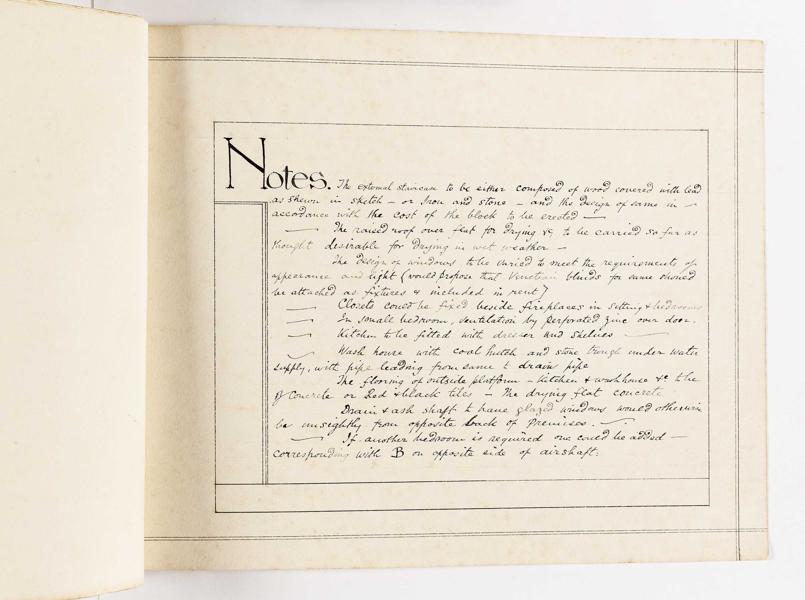 Notes. The external staircase to be either composed of wood covered with lead
as shewn in sketch – or Iron and stone – and the design of same in –
accordance with the cost of the block to be erected –
– The raised roof over flat for drying &c, to be carried so far as
thought desirable for drying in wet weather –
The design of windows to be varied to meet the requirements of
appearance and light (would propose that Venetian blinds for same should
be attached as fixtures & included in rent)
– Closets could be fixed beside fireplaces in Sitting & bedrooms
– In small bedroom, ventilation by perforated zinc over door.
– Kitchen to be fitted with dresser and shelves –
– Wash house with coal hutch and stone trough under water
supply, with pipe leading from same to drain pipe
The flooring of outside platform – Kitchen & washhouse &c to be
of Concrete or Red & black tiles – The drying flat concrete
Drain & ash shaft to have glazed windows would otherwise
be unsightly from opposite back of Premises. –
– If another bedroom is required one could be added –
corresponding with B on opposite side of airshaft.